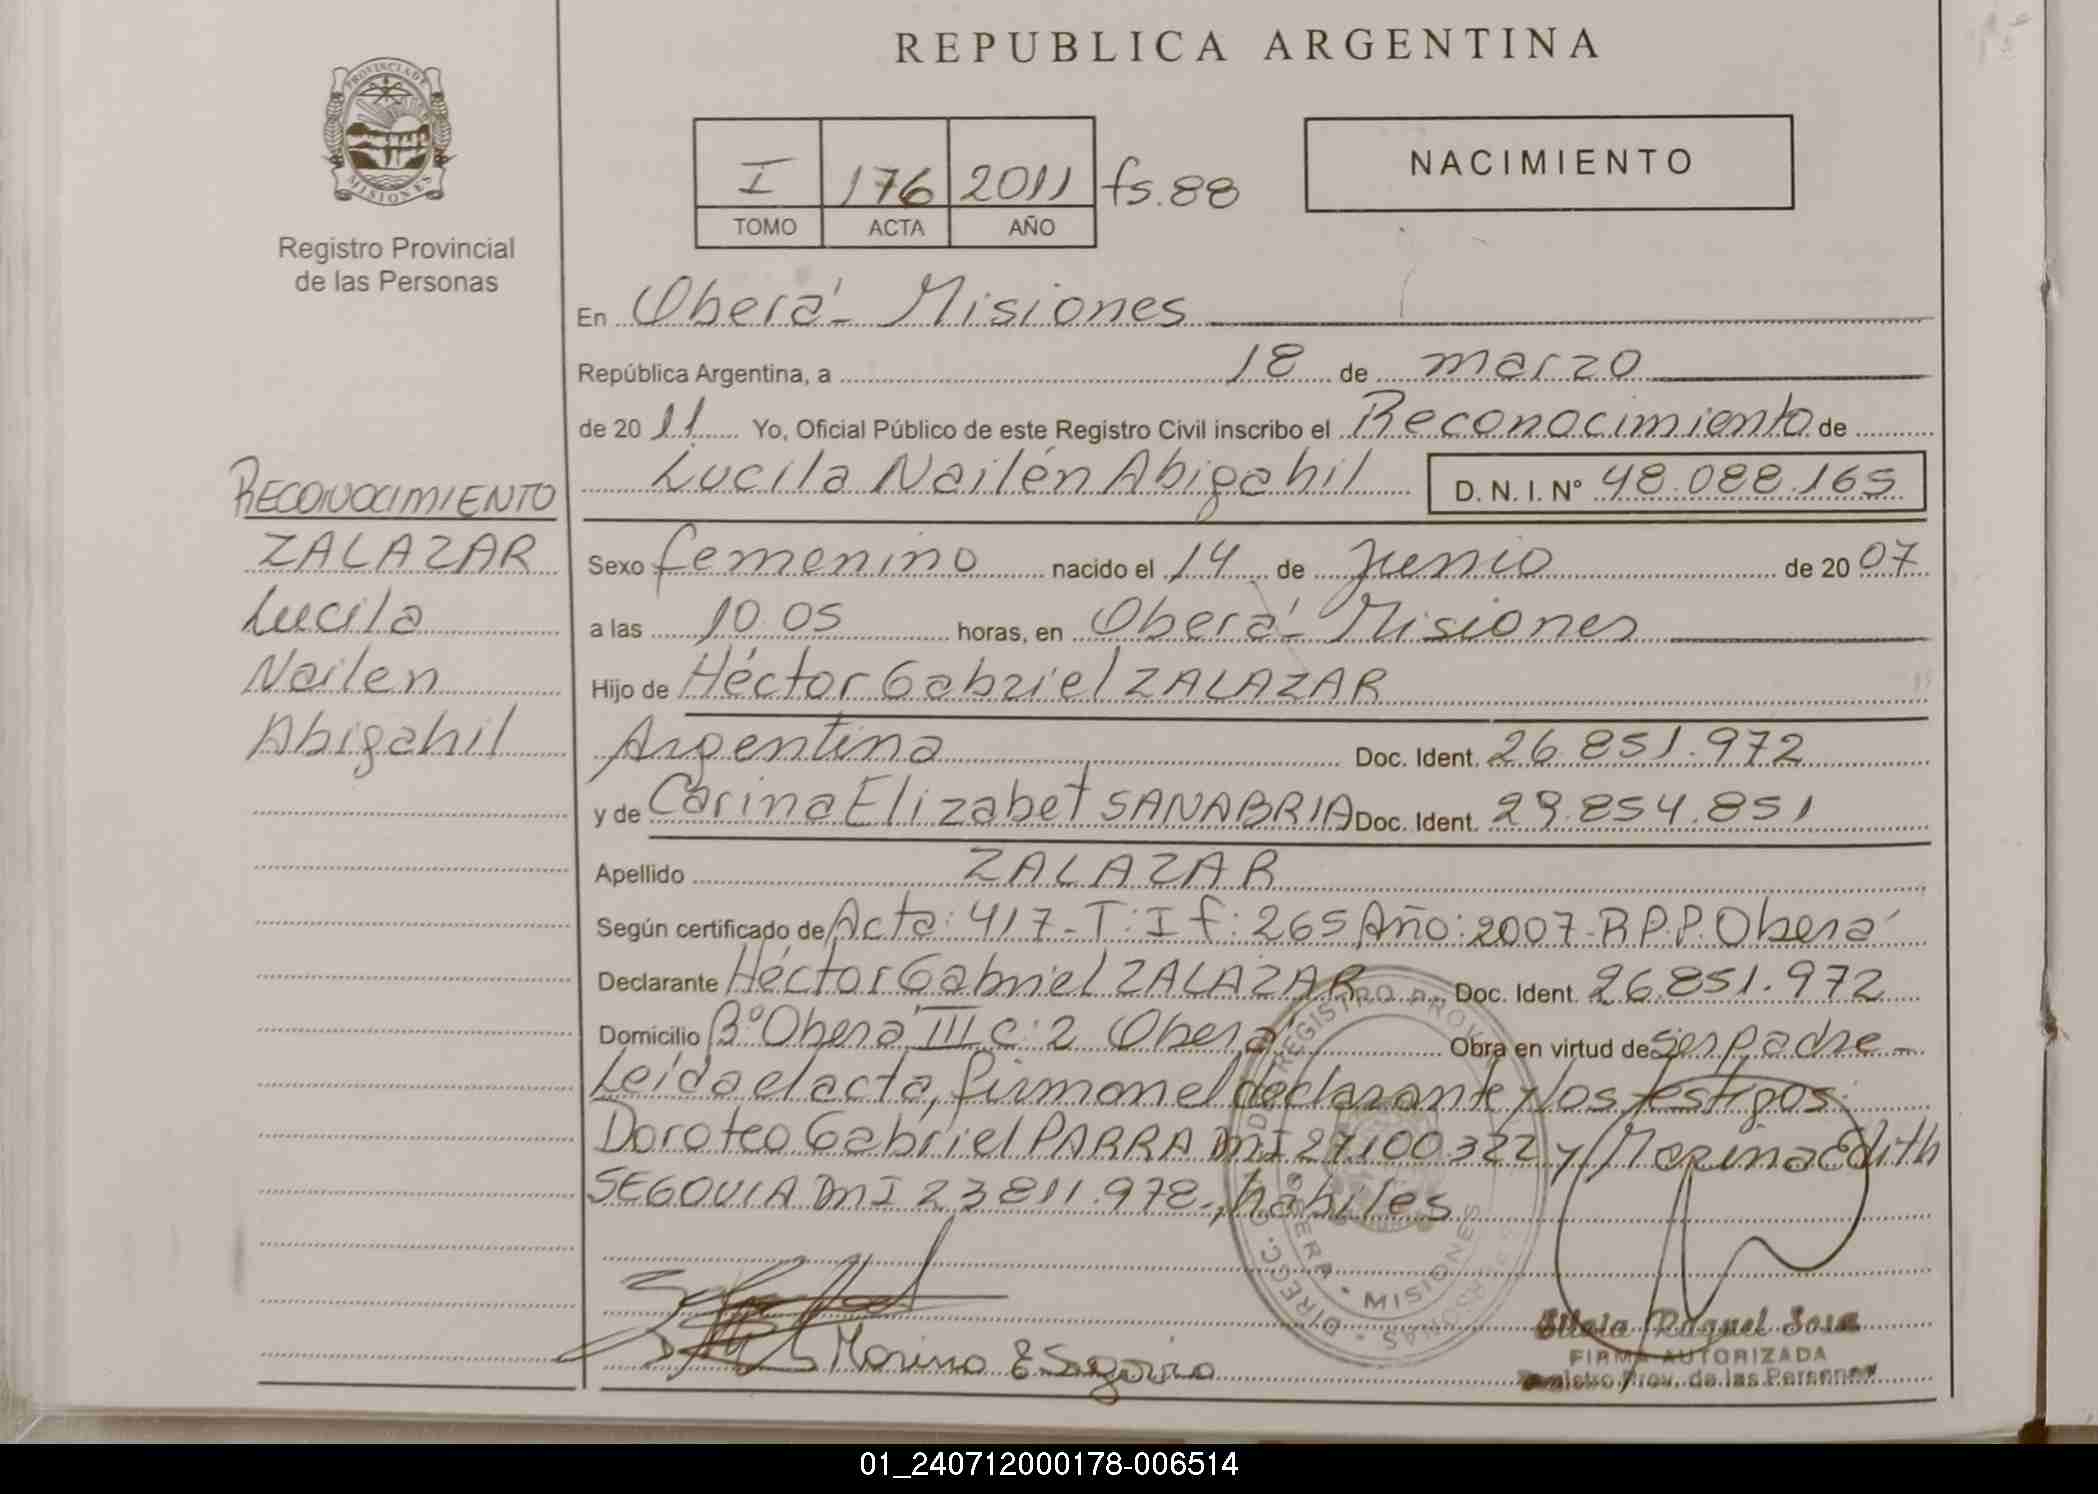 REPUBLICA ARGENTINA
PROVINCIA DE
MISIONES
Registro Provincial
de las Personas
I 176 2011 fs. 88
TOMO ACTA AÑO
NACIMIENTO
En Oberá - Misiones
República Argentina, a 18 de marzo
de 2011 Yo, Oficial Público de este Registro Civil inscribo el Reconocimiento de
Lucila Nailén Abigahil D. N. I. N° 48.088.165
RECONOCIMIENTO
ZALAZAR
Lucila
Nailen
Abigahil
Sexo femenino nacido el 14 de Junio de 2007
a las 10.05 horas, en Oberá - Misiones
Hijo de Héctor Gabriel ZALAZAR
Argentina Doc. Ident. 26.851.972
y de Carina Elizabet SANABRIA Doc. Ident. 29.854.851
Apellido ZALAZAR
Según certificado de Acta: 417 - T: I f: 265 Año: 2007 - R.P.P. Oberá
Declarante Héctor Gabriel ZALAZAR Doc. Ident. 26.851.972
Domicilio Bº Oberá III C: 2 Oberá Obra en virtud de ser padre -
Leída el acta, firman el declarante y los testigos:
Doroteo Gabriel PARRA DNI 27.100.322 y Marina Edith
SEGOVIA DNI 23.811.978-, hábiles
Marina E Segovia
MISIONES
Raquel Sosa
FIRMA AUTORIZADA
Registro Prov. de las Personas
01_240712000178-006514